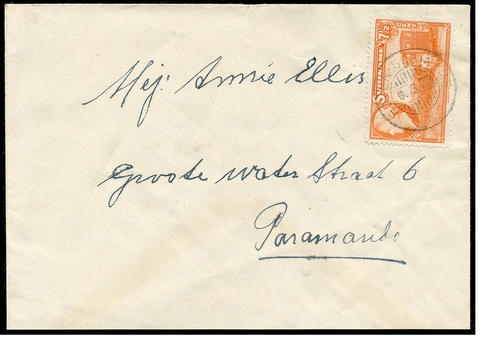 Mej: Annie Ellis
Groote water Straat 6
Paramaribo
SURINAME
7½
CENT